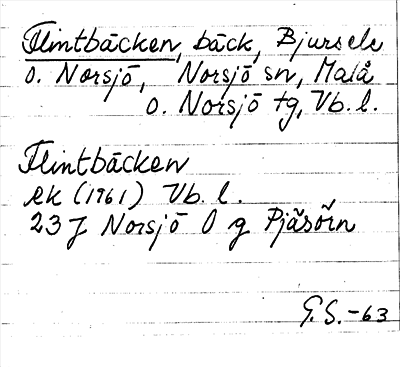 Flintbäcken, bäck, Bjursele
o. Norsjö, Norsjö sn, Malå
o. Norsjö tg, Vb. l.
Flintbäcken
ek (1961) Vb. l.
23 J Norsjö O g Pjäsörn
G.S. -63